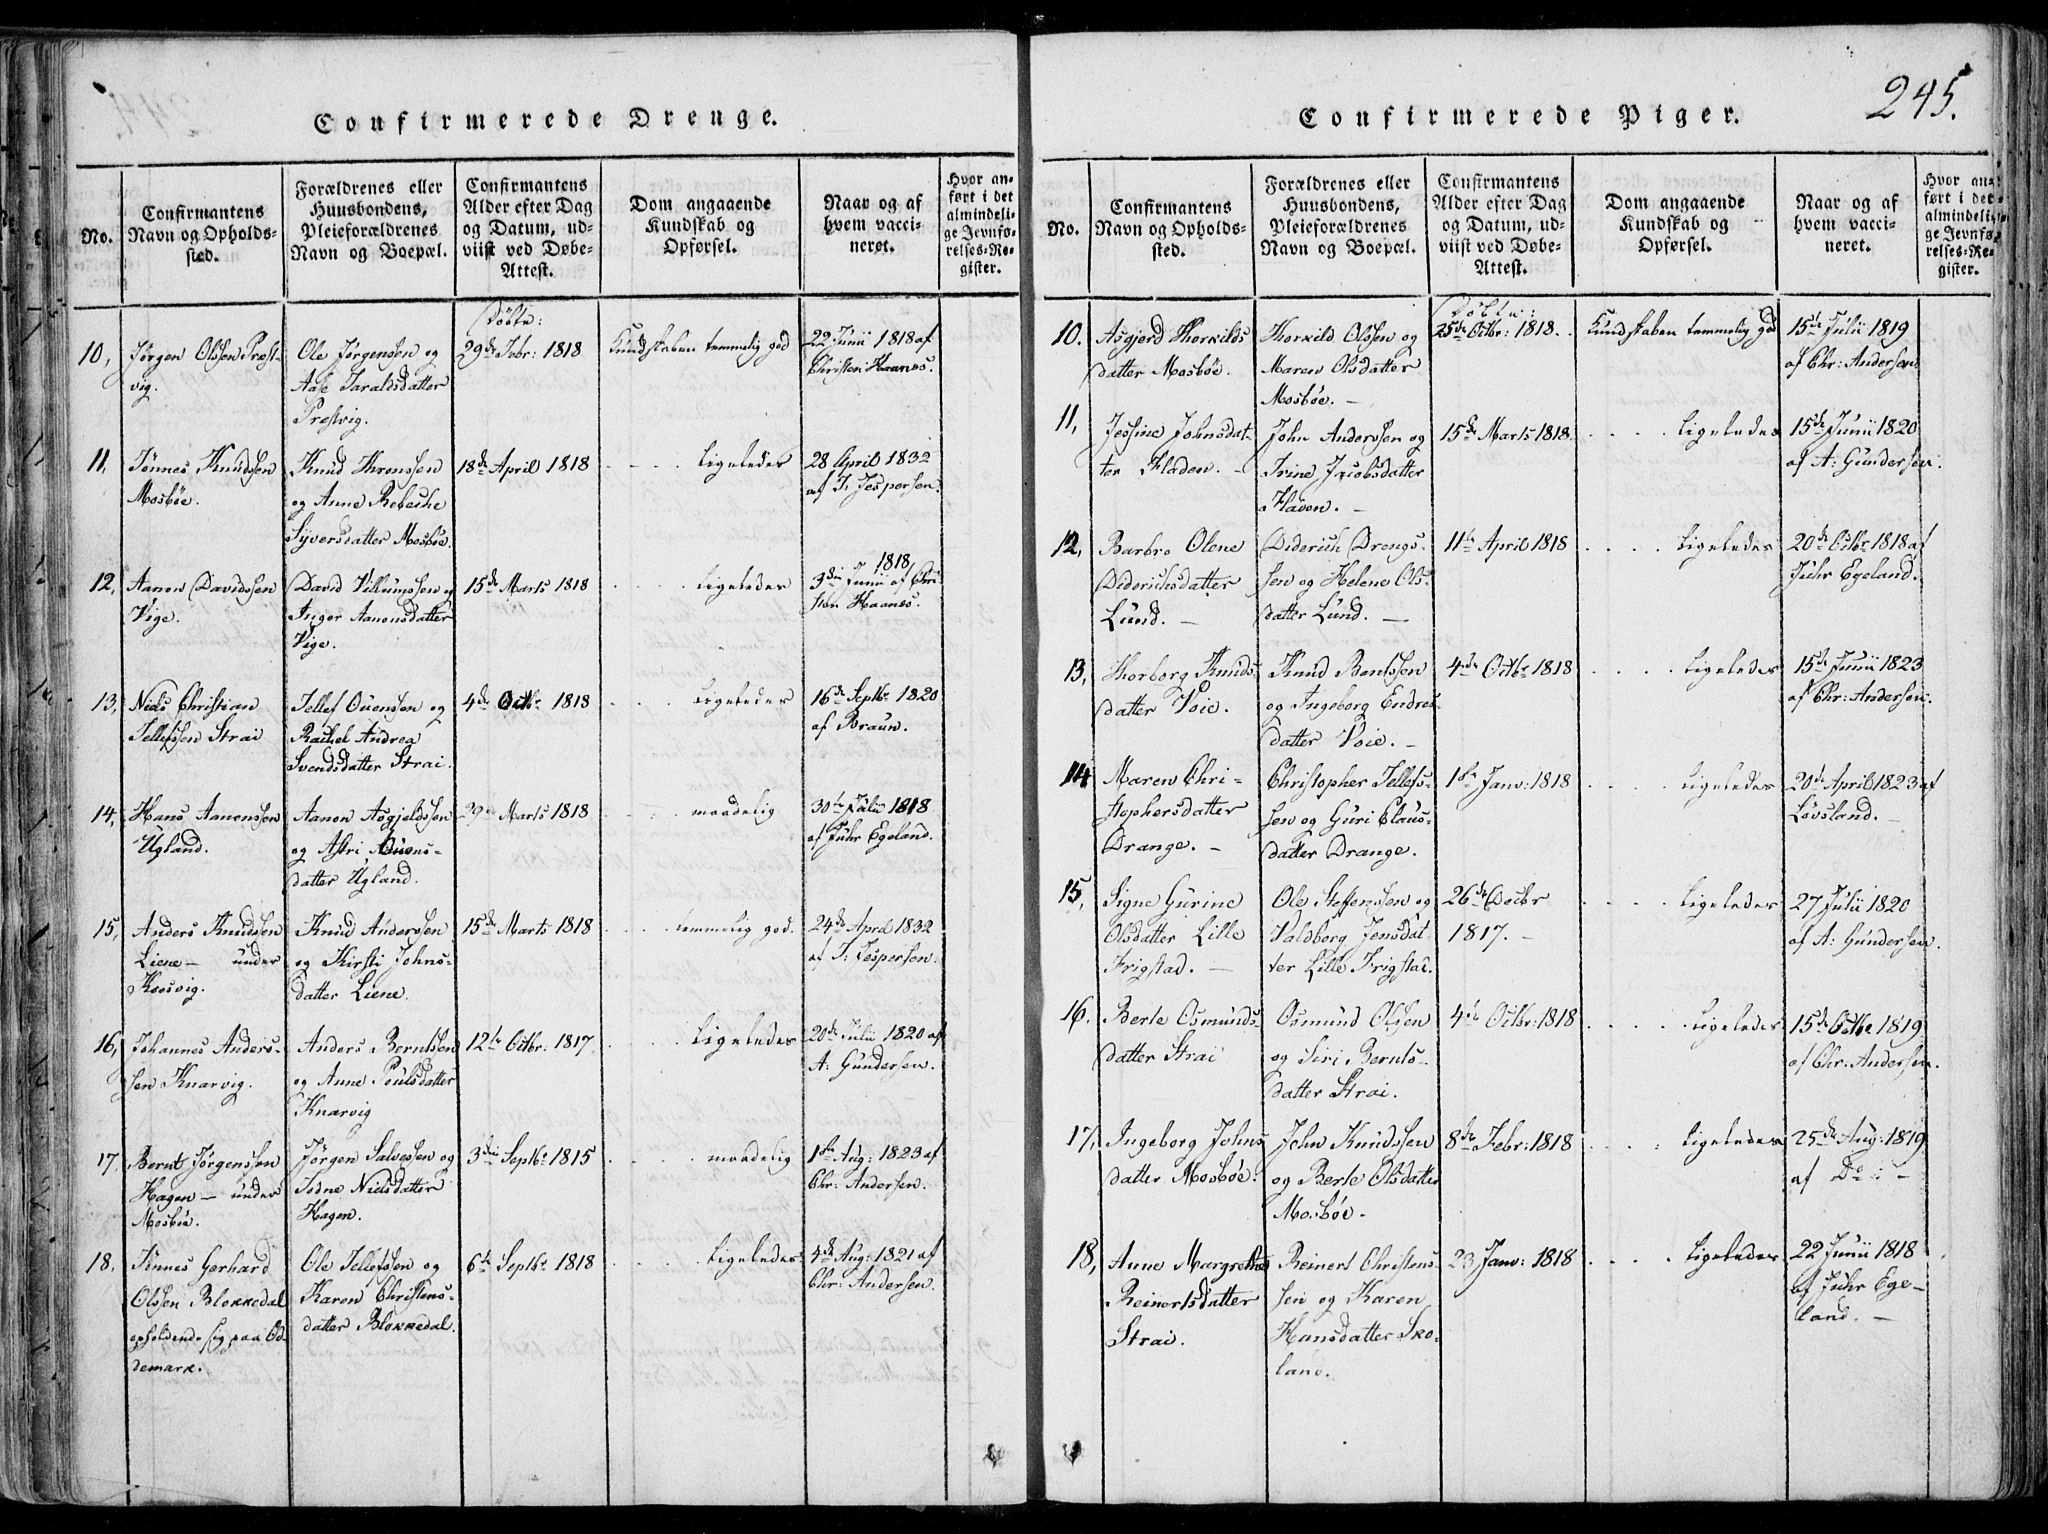 Confirmerede Drenge.
No.
Confirmantens
Navn og Opholds-
sted.
Forældrenes eller
Huusbondens,
Pleieforældrenes
Navn og Boepæl.
Confirmantens
Alder efter Dag
og Datum, ud-
viist ved Døbe-
Attest.
Dom angaaende
Kundskab og
Opførsel.
Naar og af
hvem vacci-
neret.
Hvor an-
ført i det
almindeli-
ge Jevnfø-
relses-Re-
gister.
10, Jörgen Olssen Præst-
vig.
Ole Jörgenssen og
Aase Taraldsdatter
Præstvig.
Döbte:
29de Febr: 1818
Kundskaben temmelig god
22 Junii 1818 af
Christen Haanes.
11, Tönnes Knudssen
Mosböe.
Knud Thronssen
og Anne Rebecke
Syversdatter Mosböe.
18de April 1818
ligeledes
28 April 1832
af T. Jespersen.
12, Aanon Davidssen
Vige.
David Villumssen og
Inger Aanonsdatter
Vige.
15de Marts 1818
ligeledes
1818,
3die Junii af Chri-
sten Haanes.
13, Niels Christian
Tellefssen Strai
Tellef Ouensen og
Rachel Andrea
Svendsdatter Strai.
4de Octbr 1818
ligeledes
16de Septbr 1820
af Braun.
14, Hans Aanonssen
Ugland.
Aanon Asgjeldssen
og Astri Ouens-
datter Ugland.
29de Marts 1818
maadelig
30te Julii 1818
af Fuhr Egeland.
15, Anders Knudssen
Liene — under
Kosvig.
Knud Anderssen
og Kirsti Johns-
datter Liene.
15de Marts 1818
temmelig god.
24de April 1832
af T. Jespersen.
16, Johannes Anders-
sen Knarvig.
Anders Berntssen
og Anne Poulsdatter
Knarvig
12te Octbr: 1817.
ligeledes
20de Julii 1820 af
A: Gundersen.
17, Bernt Jörgenssen
Hagen — under
Mosböe.
Jörgen Salvessen og
Todne Nielsdatter
Hagen.
3die Septbr 1815
maadelig
1ste Aug: 1823 af
Chr: Andersen.
18, Tönnes Gerhard
Olssen Blokkedal
opholdende sig paa Od-
demark.
Ole Tellefssen og
Karen Christens-
datter Blokkedal.
6te Septbr 1818
ligeledes
4de Aug: 1821 af
Chr: Andersen.
Confirmerede Piger.
245.
No.
Confirmantens
Navn og Opholds-
sted.
Forældrenes eller
Huusbondens,
Pleieforældrenes
Navn og Boepæl.
Confirmantens
Alder efter Dag
og Datum, ud-
viist ved Døbe-
Attest.
Dom angaaende
Kundskab og
Opførsel.
Naar og af
hvem vacci-
neret.
Hvor an-
ført i det
almindeli-
ge Jevnfø-
relses-Re-
gister.
10. Asgjerd Thorkilds
datter Mosböe.
Thorkild Olssen og
Maren Olsdatter
Mosböe. —
Döbte:
25de Octbr: 1818.
Kundskaben temmelig god
15de Julii 1819
af Chr: Andersen
11, Jessine Johnsdat-
ter Fladen. —
John Anderssen og
Trine Jacobsdatter
Fladen. —
15de Marts 1818.
ligeledes
15de Junii 1820
af A: Gundersen.
12, Barbro Olene
Diderichsdatter
Lund. —
Diderich Drengs-
sen og Helene Ols-
datter Lund. —
11te April 1818
ligeledes
20de Octbr 1818 af
Fuhr Egeland.
13, Thorborg Knuds-
datter Voie. —
Knud Bentssen
og Ingeborg Endres-
datter Voie. —
4de Octbr 1818
ligeledes
15de Junii 1823
af Chr: Andersen.
14 Maren Chri-
stophersdatter
Drange. —
Christopher Tellefs-
sen og Guri Claus-
datter Drange.
1ste Janv: 1818
ligeledes
20de April 1823 af
Lövsland. —
15, Signe Gurine
Olsdatter Lille
Frigstad. —
Ole Steffenssen og
Valdborg Jensdat-
ter Lille Frigstad.
26de Decbr
1817. —
ligeledes
27 Julii 1820
af A: Gundersen.
16. Berte Osmunds-
datter Strai
Osmund Olssen
og Siri Bernts-
datter Strai.
4de Octbr: 1818
ligeledes
15de Octbr 1819
af Chr: Andersen.
17, Ingeborg Johns-
datter Mosböe.
John Knudssen
og Berte Olsdatter
Mosböe.
8de Febr: 1818
ligeledes
25de Aug: 1819
af Do: —
18, Anne Margrethe
Reinertsdatter
Strai.
Reinert Christens-
sen og Karen
Hansdatter Sko-
land.
23 Janv: 1818
ligeledes
22 Junii 1818
af Fuhr Ege-
land. —